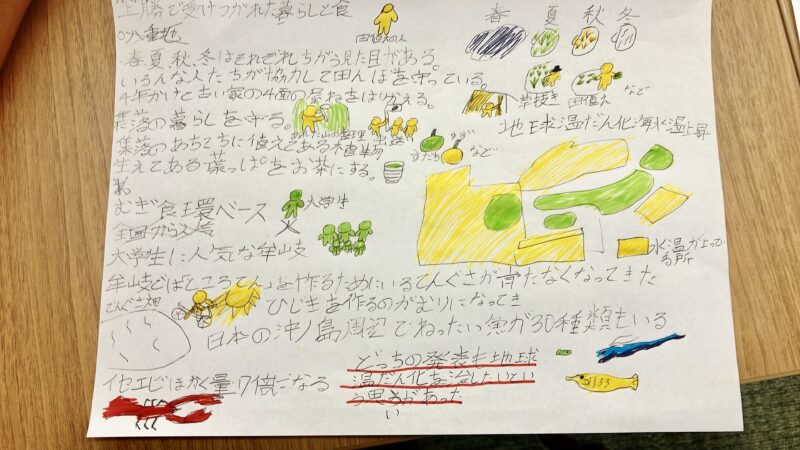 上勝で受けつがれた暮らしと食
田植えの人
春 夏 秋 冬
春、夏、秋、冬はそれぞれちがう見た目がある。
いろんな人たちが協力して田んぼを守っている。
4年かけて古い家の4面の茅ねをはりかえる。
草抜き 田植え など
集落の暮らしを守る。
あれた山の整理
集落のあちこちに植えてある木
すだち ゆず など
生えてある葉っぱをお茶にする。
地球温だん化 海水温上昇
むぎ食環ベース
大学生
大学生に人気な牟岐
水温が上っている所
牟岐でばところてんを作るためにいるてんぐさが育たなくなってきた
てんぐさ畑
ひじきを作るのがむりになってき
日本の沖ノ島周辺でねったい魚が30種類もいる
イセエビほかく量7倍になる
どっちの発表も地球
温だん化を治したいとい
う思さがあった
い